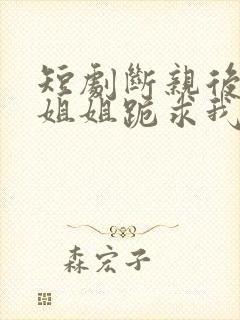 短劇斷親後
姐姐跪求我
森宏子